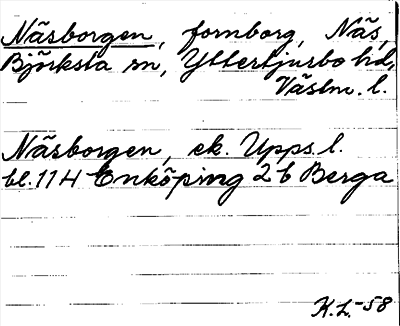 Näsborgen, fornborg, Näs,
Björksta sn, Yttertjurbo hd,
Västm. l.
Näsborgen, ek. Upps. l.
bl. 114 Enköping 2b Berga
K.L.-58